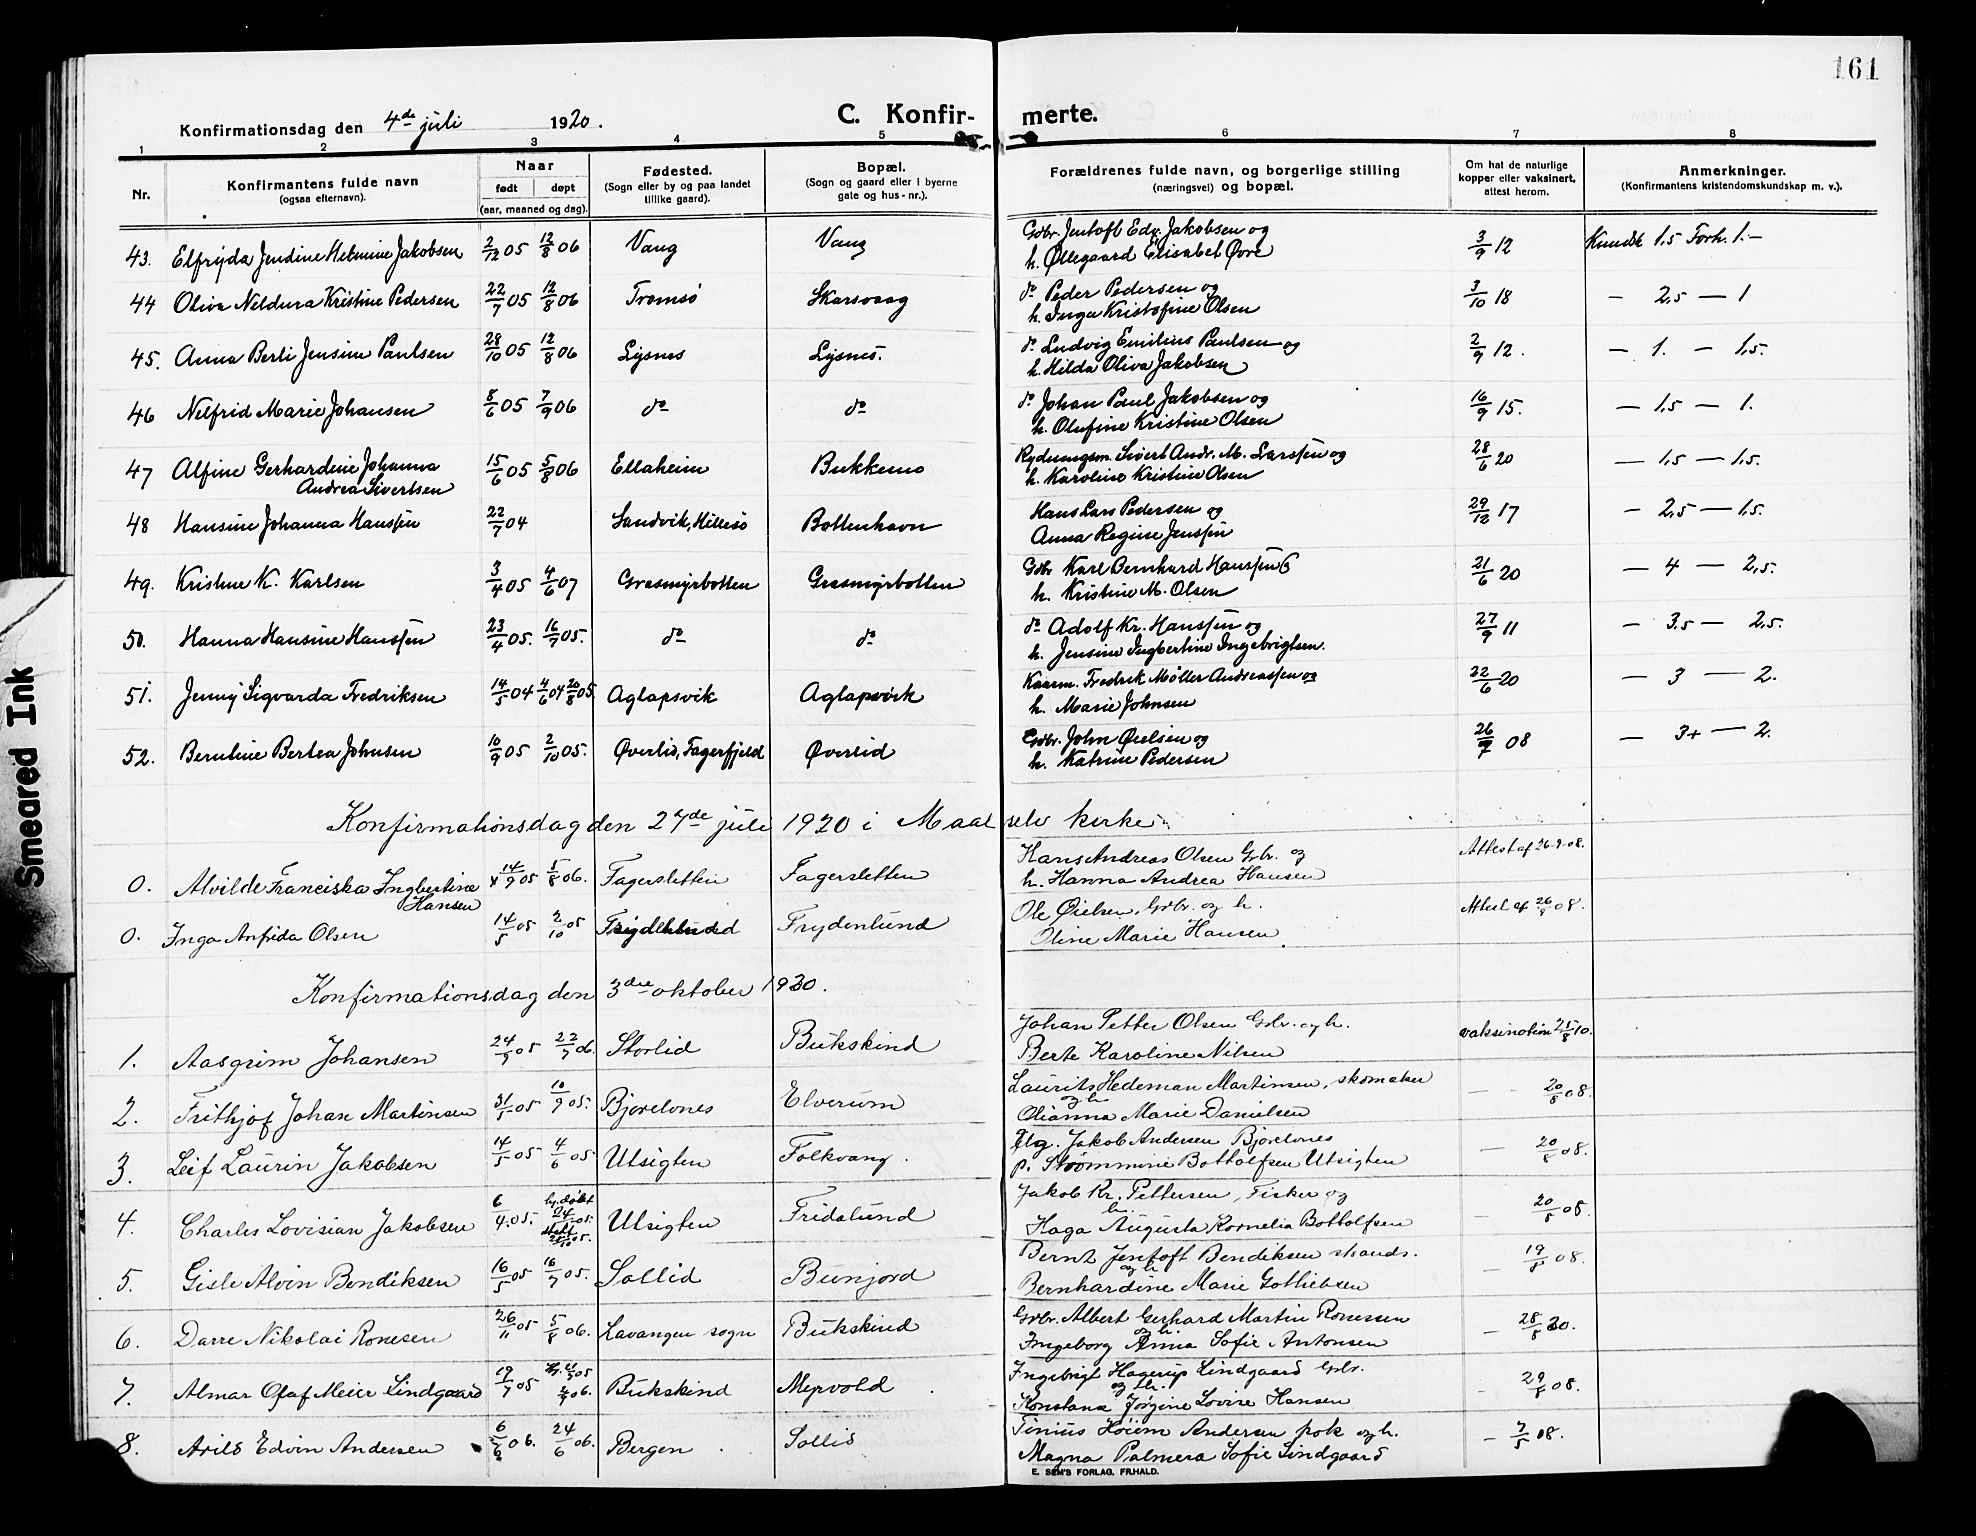 161
Smeared Ink
C. Konfirmerte.
Konfirmationsdag den 4de juli 1920.
1 2 3 4 5 6 7 8
Nr.
Konfirmantens fulde navn
(ogsaa efternavn).
Naar
født døpt
(aar, maaned og dag).
Fødested.
(Sogn eller by og paa landet
tillike gaard).
Bopæl.
(Sogn og gaard eller i byerne
gate og hus-nr.).
Forældrenes fulde navn, og borgerlige stilling
(næringsvei) og bopæl.
Om hat de naturlige
kopper eller vaksinert,
attest herom.
Anmerkninger.
(Konfirmantens kristendomskundskap m. v.).
43. Elfryda Jendine Helmine Jakobsen 2/12 05 12/8 06 Vang Vang Gdbr. Jentoft Edv. Jakobsen og
h. Øllegaard Elisabet Øvre 3/9 12 Kundsk 1,5 Forh. 1.–
44 Oliva Neldura Kristine Pedersen 22/7 05 12/8 06 Tromsø Skarsvaag do Peder Pedersen og
h. Inga Kristofine Olsen 3/10 18 – 2,5 – 1
45. Anna Berli Jensine Paulsen 28/10 05 12/8 06 Lysnes Lysnes. do Ludvig Emilius Paulsen og
h. Hilda Oliva Jakobsen 2/9 12. – 1. – 1,5.
46 Nelfrid Marie Johansen 8/6 05 7/9 06 do do do Johan Paul Jakobsen og
h. Olufine Kristine Olsen 16/9 15. – 1,5 – 1.
47 Alfine Gerhardine Johanna
Andrea Sivertsen 15/6 05 5/8 06 Ellaheim Bukkemo Rydningsm. Sivert Andr. M. Larssen og
h. Karoline Kristine Olsen 28/6 20 – 1,5 – 1,5.
48 Hansine Johanna Hanssen 22/7 04 Sandvik, Hillesø Bottenhavn Hans Lars Pedersen og
Anna Regine Jenssen 29/12 17 – 2,5 – 1,5.
49. Kristine K. Karlsen 3/4 05 4/6 07 Grasmyrbotten Grasmyrbotten Gdbr Karl Bernhard Hanssen
h. Kristine M. Olsen 21/6 20 – 4 – 2,5.
50. Hanna Hansine Hanssen 23/4 05. 16/7 05. do do do Adolf Kr. Hanssen og
h. Jensine Ingbertine Ingebrigtsen. 27/9 11 – 3.5 – 2,5.
51. Jenny Sigvarda Fredriksen 14/5 04 4/6 04 20/8 05. Aglapsvik Aglapsvik Kaarm. Fredrik Møller Andreassen og
h. Marie Johnsen 22/6 20 – 3 – 2.
52. Berntine Bertea Johnsen 10/9 05 2/10 05. Øverlid, Fagerfjeld Øverlid Gdbr. John Øielsen og
h. Katrine Pedersen 26/9 08 – 3+ – 2.
Konfirmationsdag den 27de juli 1920 i Maalselv kirke
0. Alvilde Franciska Ingbertine
Hansen 14/9 05 5/8 06. Fagersletten Fagersletten Hans Andreas Olsen Gbr. og
h. Hanna Andrea Hansen Attest af 26-9-08.
0. Inga Anfrida Olsen 14/5 05 2/10 05 Frydenlund Frydenlund Ole Øielsen, Gdbr. og h.
Oline Marie Hansen. Attest af 26/9 08.
Konfirmationsdag den 3dre oktober 1920.
1. Aasgrim Johansen 24/9 05 22/7 06. Storlid Bukskind Johan Petter Olsen Gdbr. og h.
Berte Karoline Nilsen vaksination 25/8 10.
2. Frithjof Johan Martinsen 31/5 05 10/9 05. Bjorelvnes Elverum Laurits Hedeman Martinsen, skomaker
og h
Olianna Marie Danielsen – 20/8 08.
3. Leif Laurin Jakobsen 14/5 05 4/6 05 Utsigten Folkvang. Ug. Jakob Andersen Bjorelvnes
p. Strømmine Bottolfsen Utsigten – 20/8 08.
4. Charles Lovisian Jakobsen 6/4 05. hj.døbt 24/ 05. Utsigten Fridalund Jakob Kr. Pettersen, Fisker og
h.
Haga Augusta Kornelia Bottolfsen – 20/8 08.
5. Gisle Alvin Bendiksen 16/5 05 16/7 05. Sollid Bunjord Bernt Jentoft Bendiksen
og h
Bernhardine Marie Gotliebsen – 19/8 08.
6. Darre Nikolai Ronesen 26/11 05 5/8 06. Lavangen sogn Bukskind Gdbr. Albert Gerhard Martin Ronessen
og h.
Ingeborg Anna Sofie Antonsen – 28/8 20.
7. Almar Olaf Meier Lindgaard 19/7 05 Bukskind Myrvold Ingebrigt Hagerup Lindgaard Gdbr.
og h.
Konstana Jørgine Lovise Hansen – 29/8 08.
8. Arild Edvin Andersen 6/6 06. 24/6 06. Bergen Sollid Tinius Hoiem Andersen pok og h.
Magna Palmera Sofie Lindgaard – 7/5 08.
E. SEM'S FORLAG, FR.HALD.